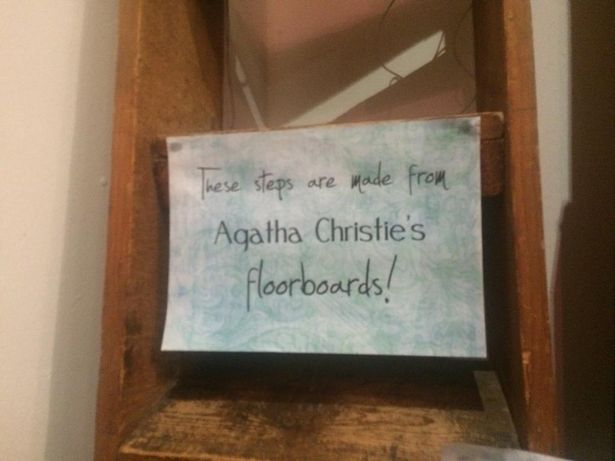 These steps are made from
Agatha Christie's
floorboards!